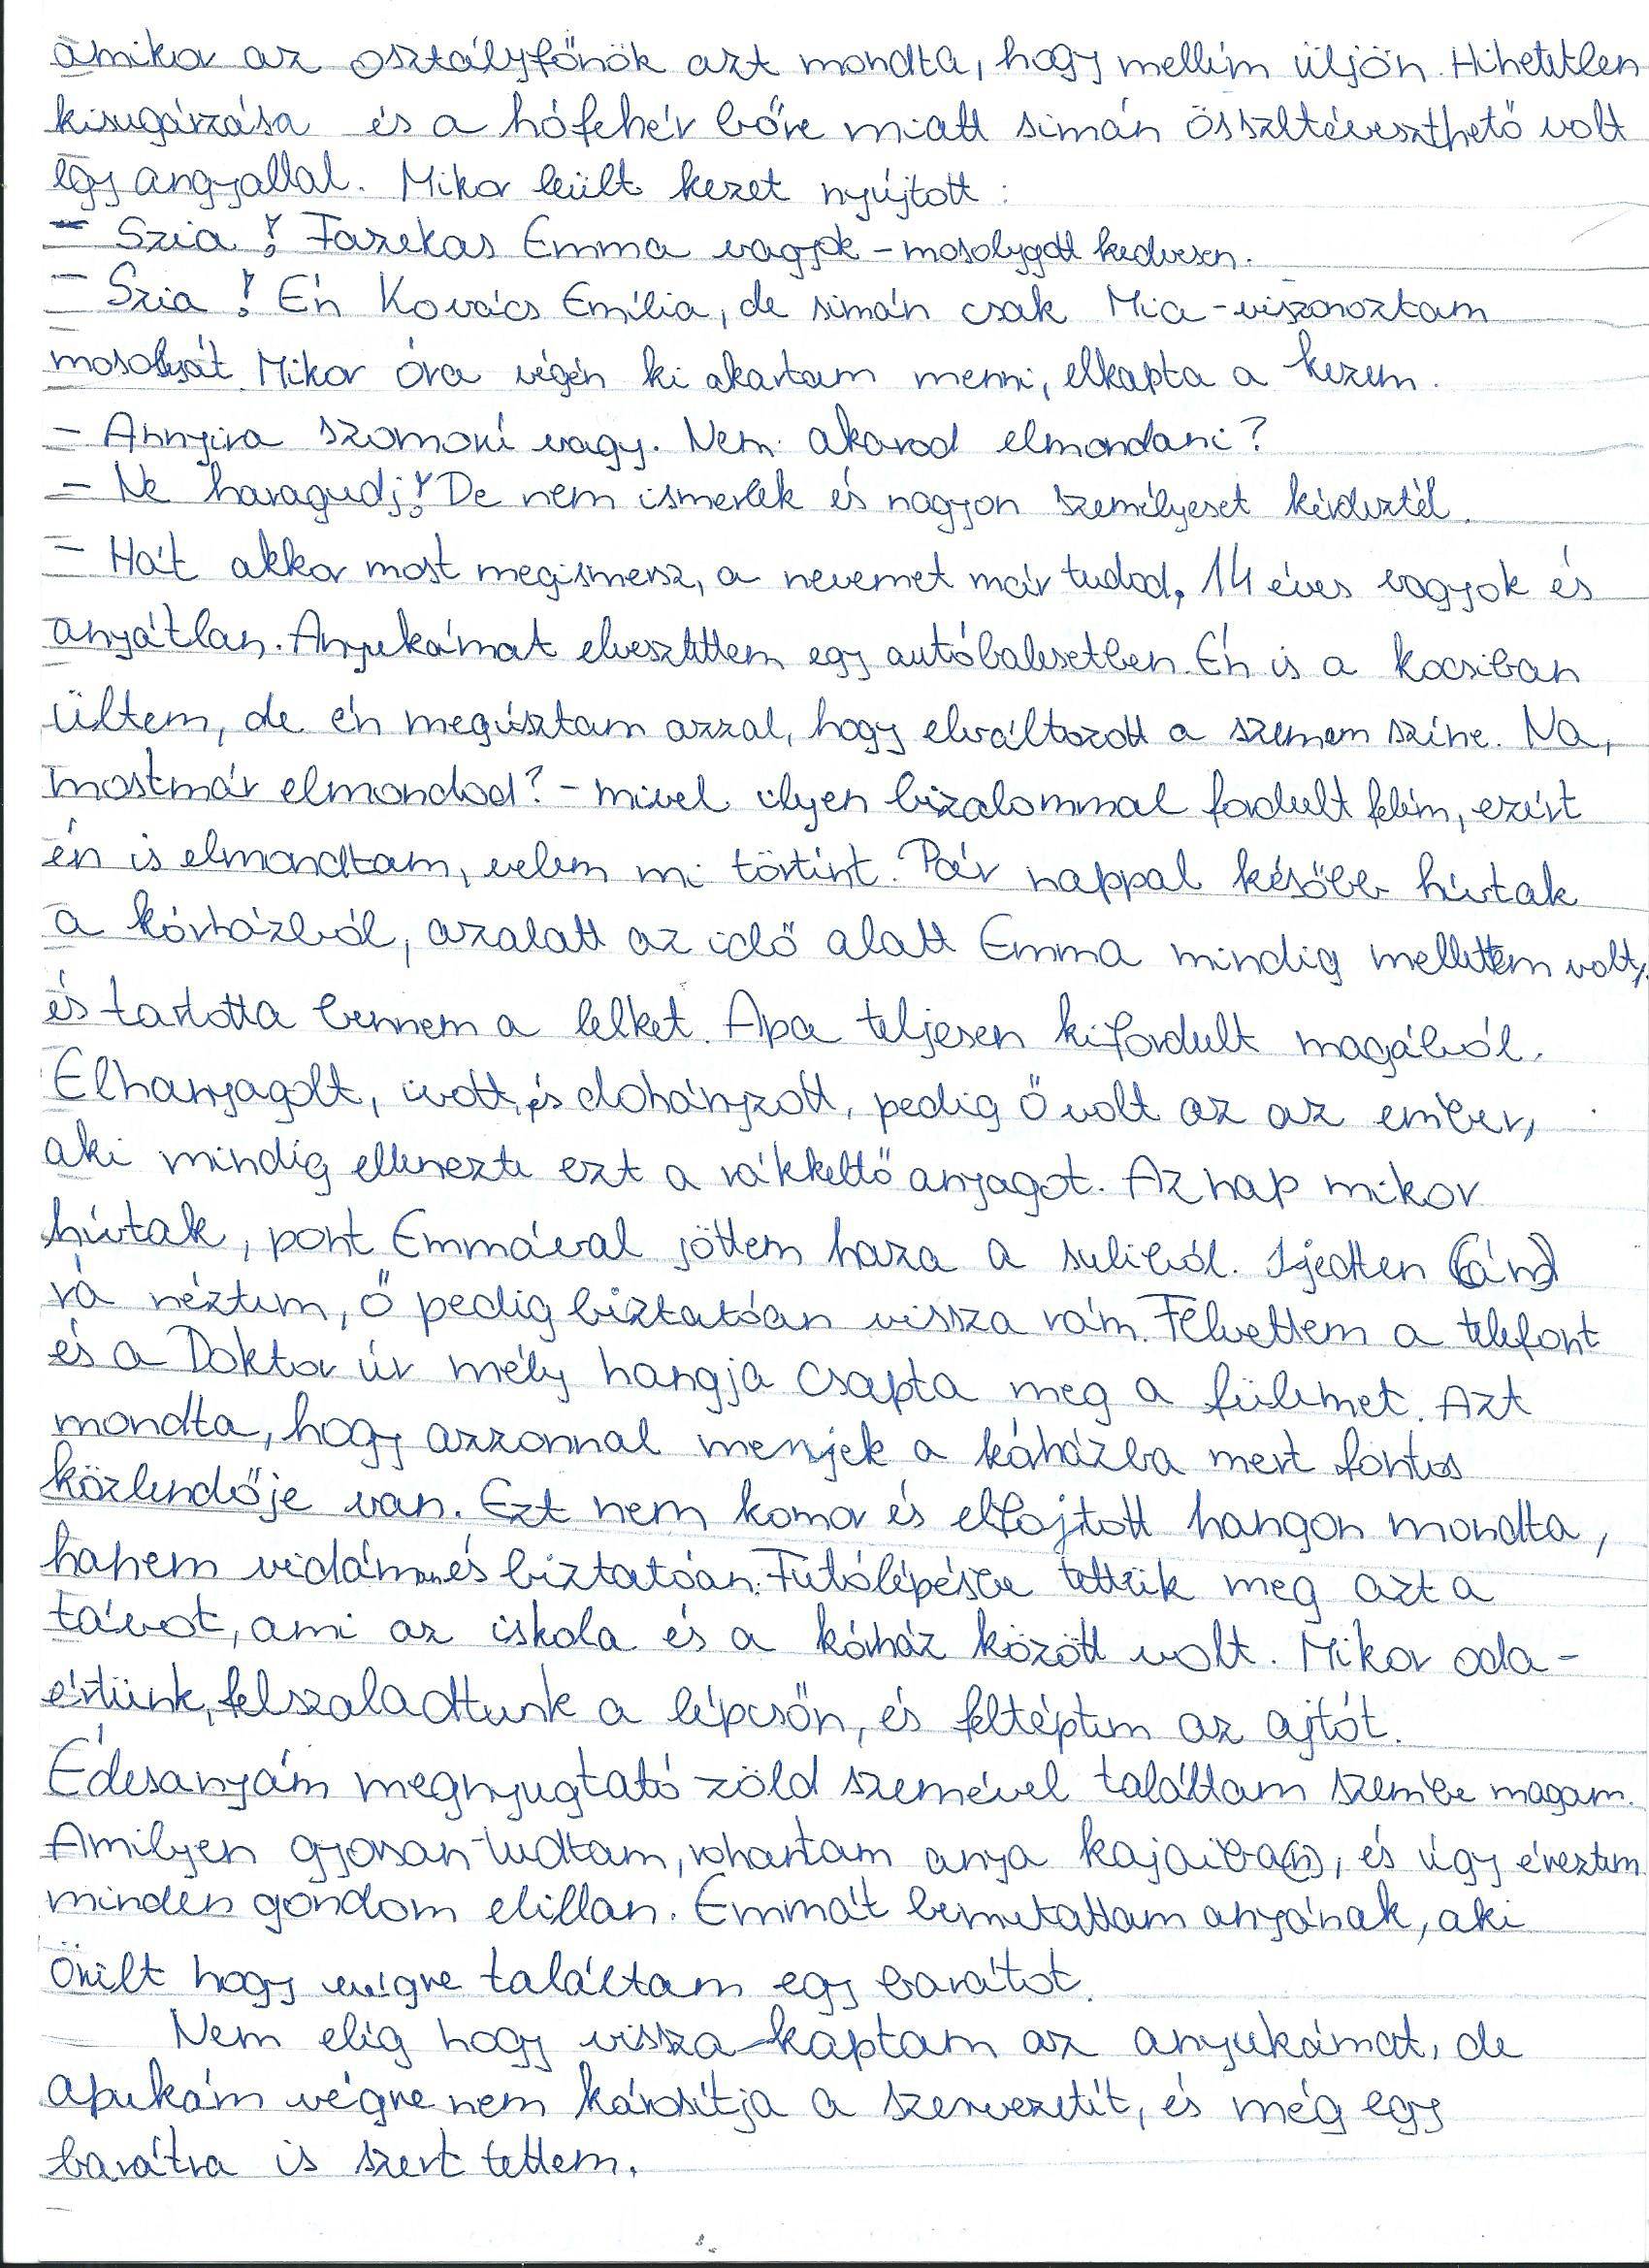 amikor az osztályfőnök azt mondta, hogy mellém üljön. Hihetetlen
kisugárzása és a hófehér bőre miatt simán összetéveszthető volt
egy angyallal. Mikor leült kezet nyújtott:
- Szia! Fazekas Emma vagyok - mosolygott kedvesen.
- Szia! Én Kovács Emília, de simán csak Mia - viszonoztam
mosolyát. Mikor óra végén ki akartam menni, elkapta a kezem.
- Annyira szomorú vagy. Nem akarod elmondani?
- Ne haragudj! De nem ismerlek és nagyon személyeset kérdeztél.
- Hát akkor most megismersz, a nevemet már tudod, 14 éves vagyok és
anyátlan. Anyukámat elvesztettem egy autóbalesetben. Én is a kocsiban
ültem, de én megúsztam azzal, hogy elváltozott a szemem színe. Na,
mostmár elmondod? - mivel ilyen bizalommal fordult felém, ezért
én is elmondtam, velem mi történt. Pár nappal később hívtak
a kórházból, azalatt az idő alatt Emma mindig mellettem volt,
és tartotta bennem a lelket. Apa teljesen kifordult magából.
Elhanyagolt, ivott, és dohányzott, pedig ő volt az az ember,
aki mindig ellenezte ezt a rákkeltő anyagot. Aznap mikor
hívtak, pont Emmával jöttem haza a suliból. Ijedten (rám)
rá néztem, ő pedig biztatóan vissza rám. Felvettem a telefont
és a Doktor úr mély hangja csapta meg a fülemet. Azt
mondta, hogy azzonnal menjek a kórházba mert fontos
közlendője van. Ezt nem komor és elfojtott hangon mondta,
hanem vidáman és biztatóan. Futólépésbe tettük meg azt a
távot, ami az iskola és a kórház között volt. Mikor oda-
értünk, felszaladtunk a lépcsőn, és feltéptem az ajtót.
Édesanyám megnyugtató zöld szemével találtam szembe magam.
Amilyen gyorsan tudtam, rohantam anya kajaiba(n), és úgy éreztem
minden gondom elillan. Emmát bemutattam anyának, aki
örült hogy végre találtam egy barátot.
Nem elég hogy vissza-kaptam az anyukámat, de
apukám végre nem károsítja a szervezetét, és még egy
barátra is szert tettem.